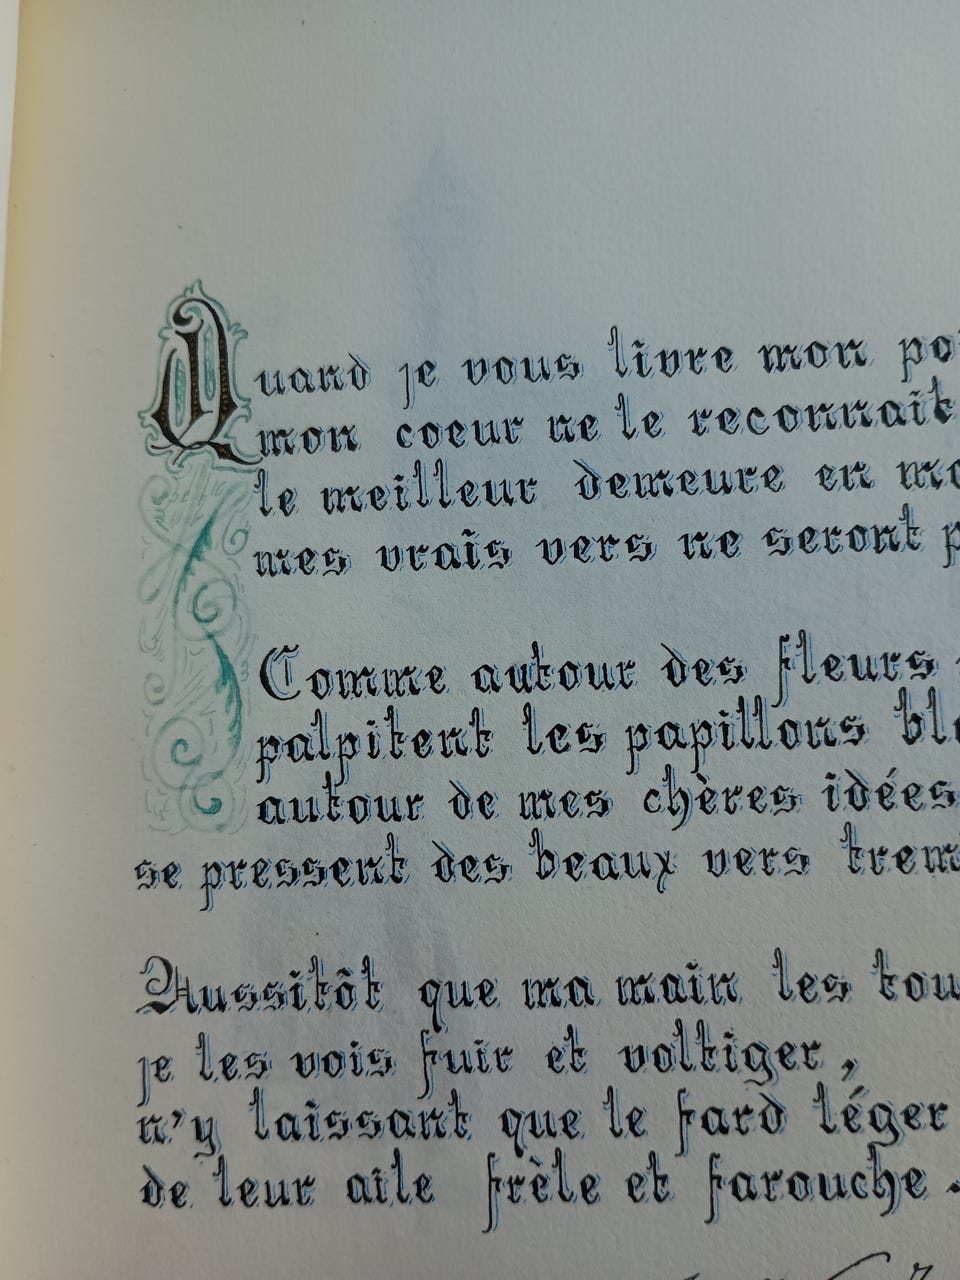 Quand je vous livre mon
mon coeur ne le reconnaît
le meilleur demeure en
mes vrais vers ne seront
Comme autour des fleurs
palpitent les papillons
autour de mes chères idées
se pressent des beaux vers
Aussitôt que ma main les
je les vois fuir et voltiger,
n'y laissant que le fard léger
de leur aile frèle et farouche.